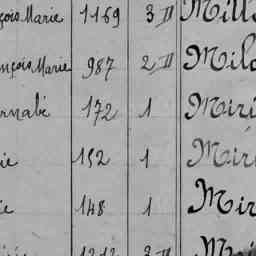 çois Marie 1169 3 D Mill
nçois Marie 987 2 D Mila
ernabé 172 1 Miri
ie 152 1 Miri
ie 148 1 Mir